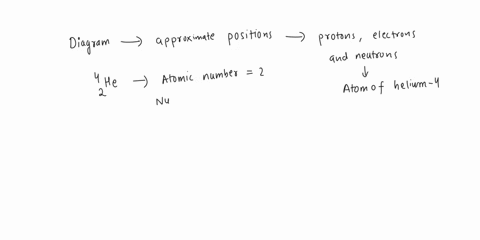 Diagram → approximate positions → protons, electrons
and neutrons
↓
Atom of helium-4
⁴₂He → Atomic number = 2
Nu